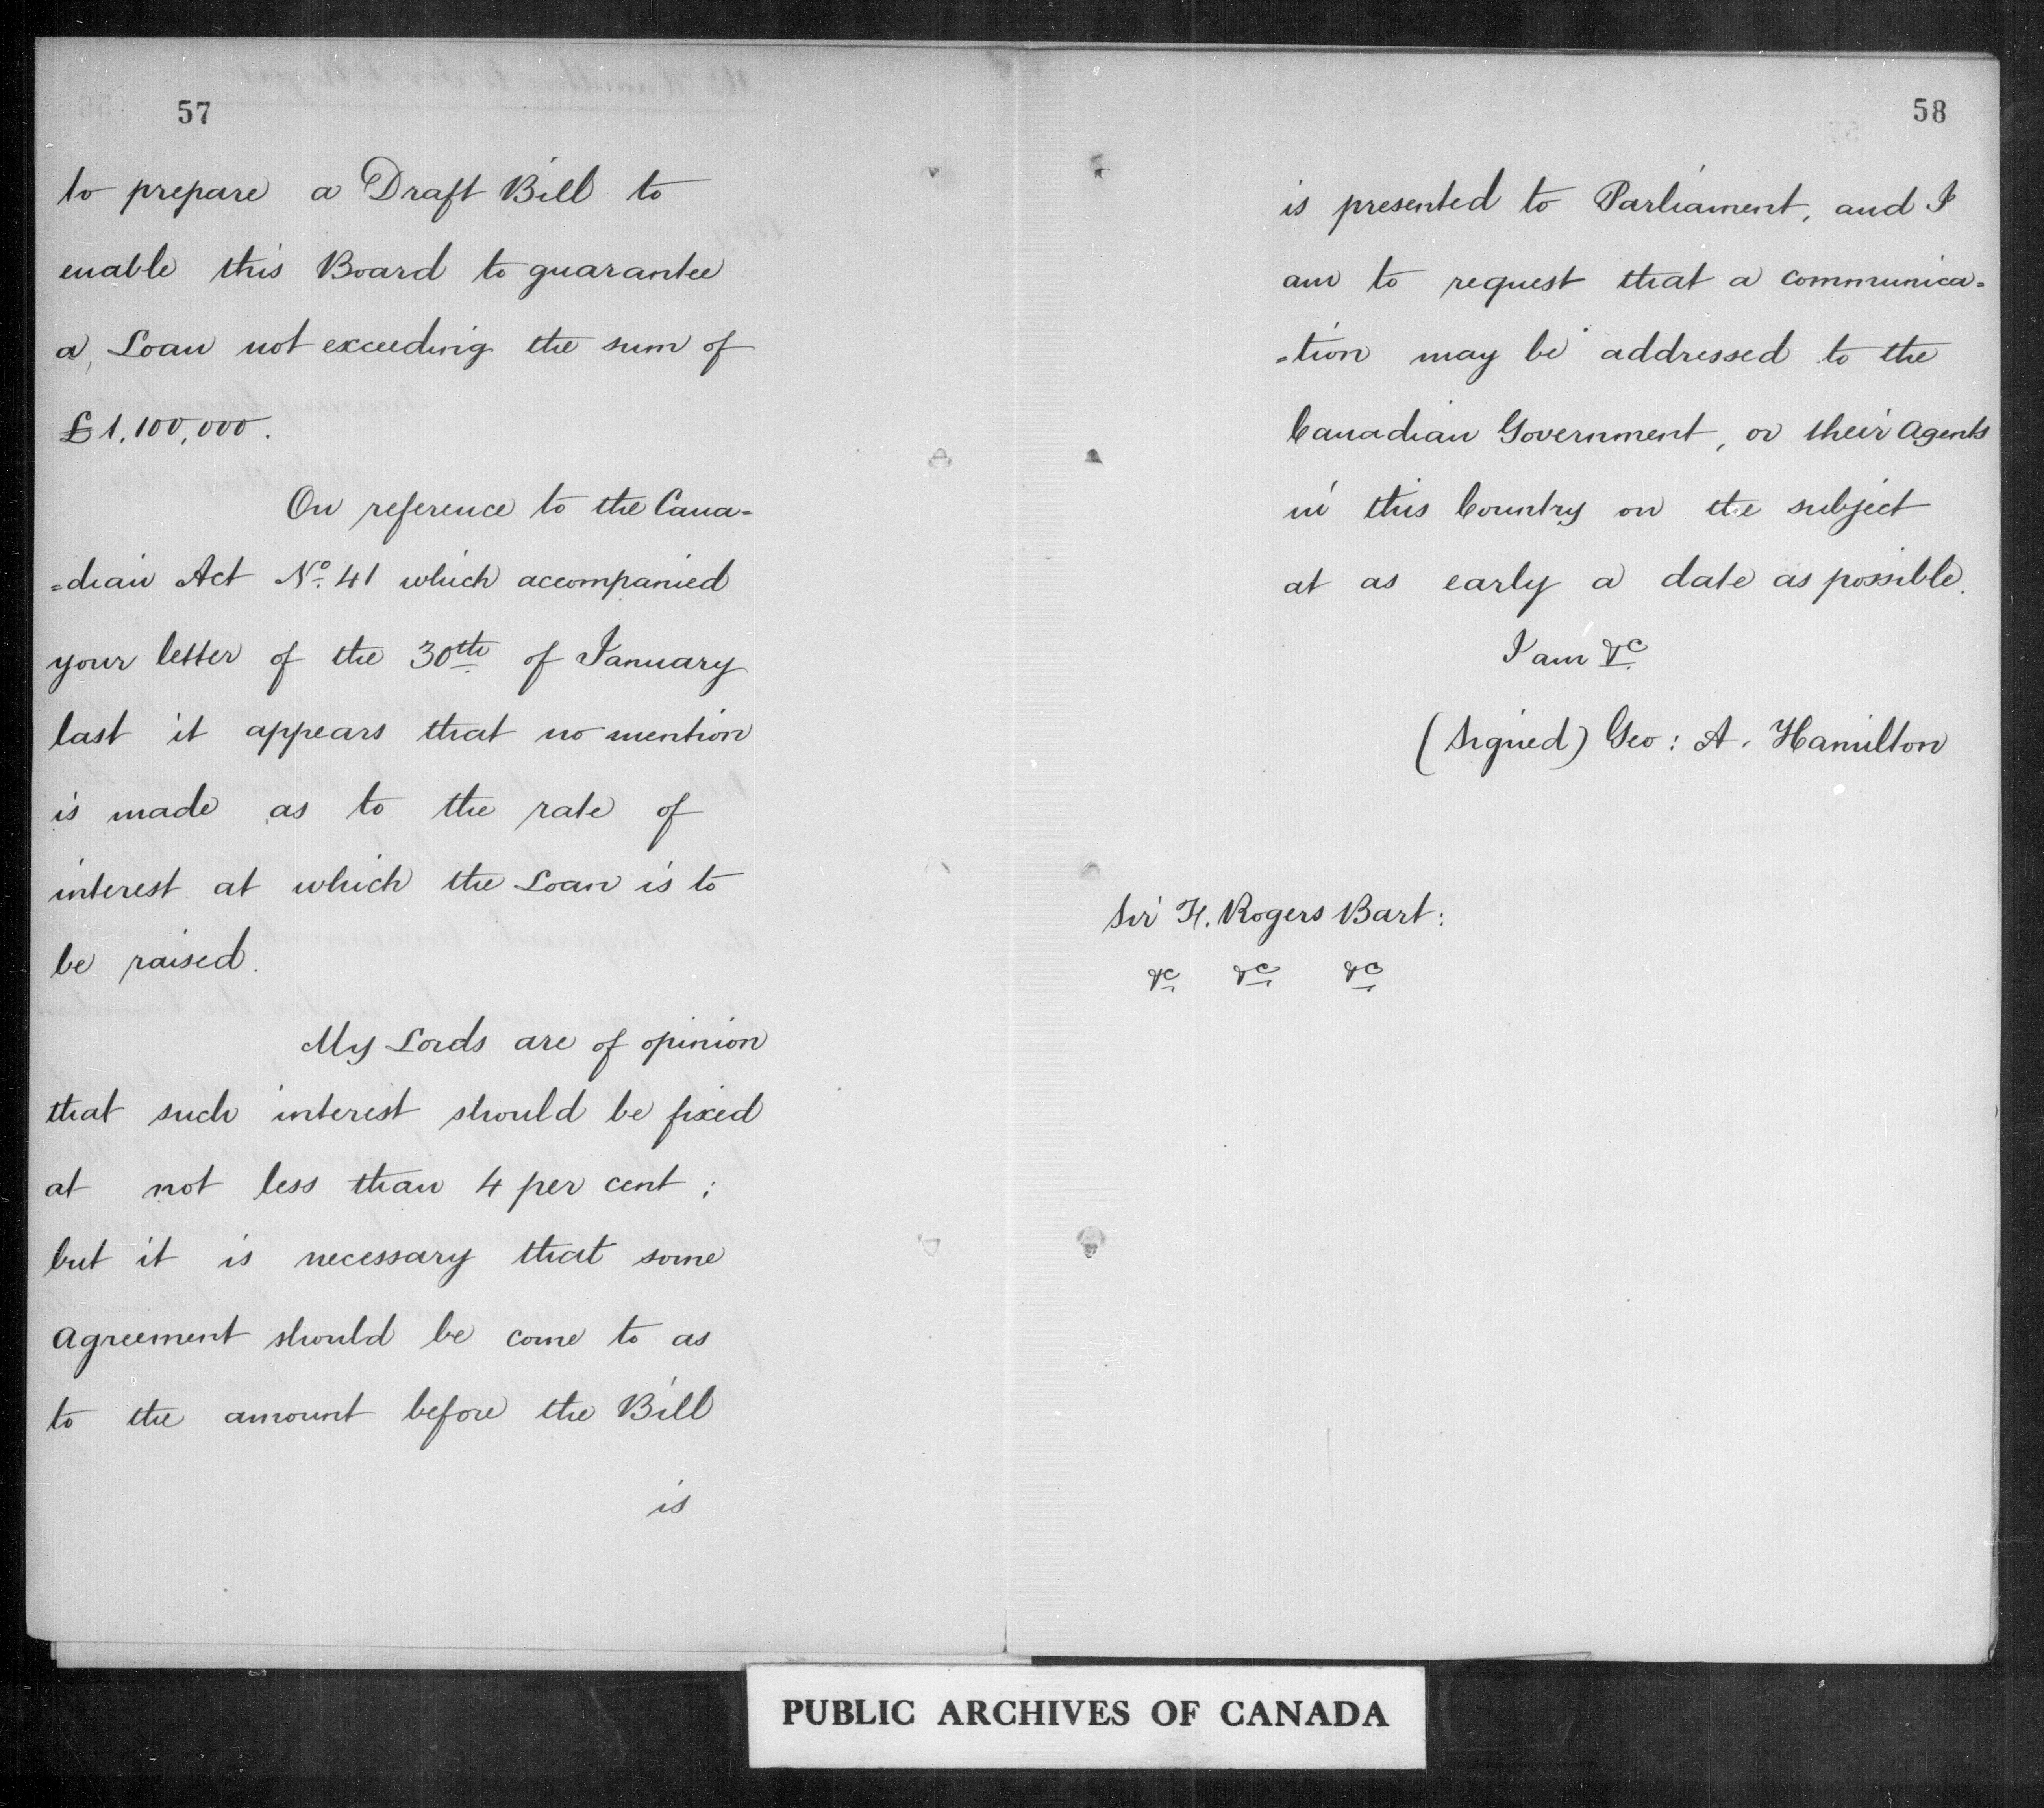 57
to prepare a Draft Bill to
enable this Board to guarantee
a Loan not exceeding the sum of
£1,100,000.
On reference to the Cana=
=dian Act No. 41 which accompanied
your letter of the 30th of January
last it appears that no mention
is made as to the rate of
interest at which the Loan is to
be raised.
My Lords are of opinion
that such interest should be fixed
at not less than 4 per cent;
but it is necessary that some
agreement should be come to as
to the amount before the Bill
is
58
is presented to Parliament, and I
am to request that a communica=
=tion may be addressed to the
Canadian Government, or their Agents
in this Country on the subject
at as early a date as possible.
I am &c
(Signed) Geo: A. Hamilton
Sir F. Rogers Bart:
&c &c &c
PUBLIC ARCHIVES OF CANADA